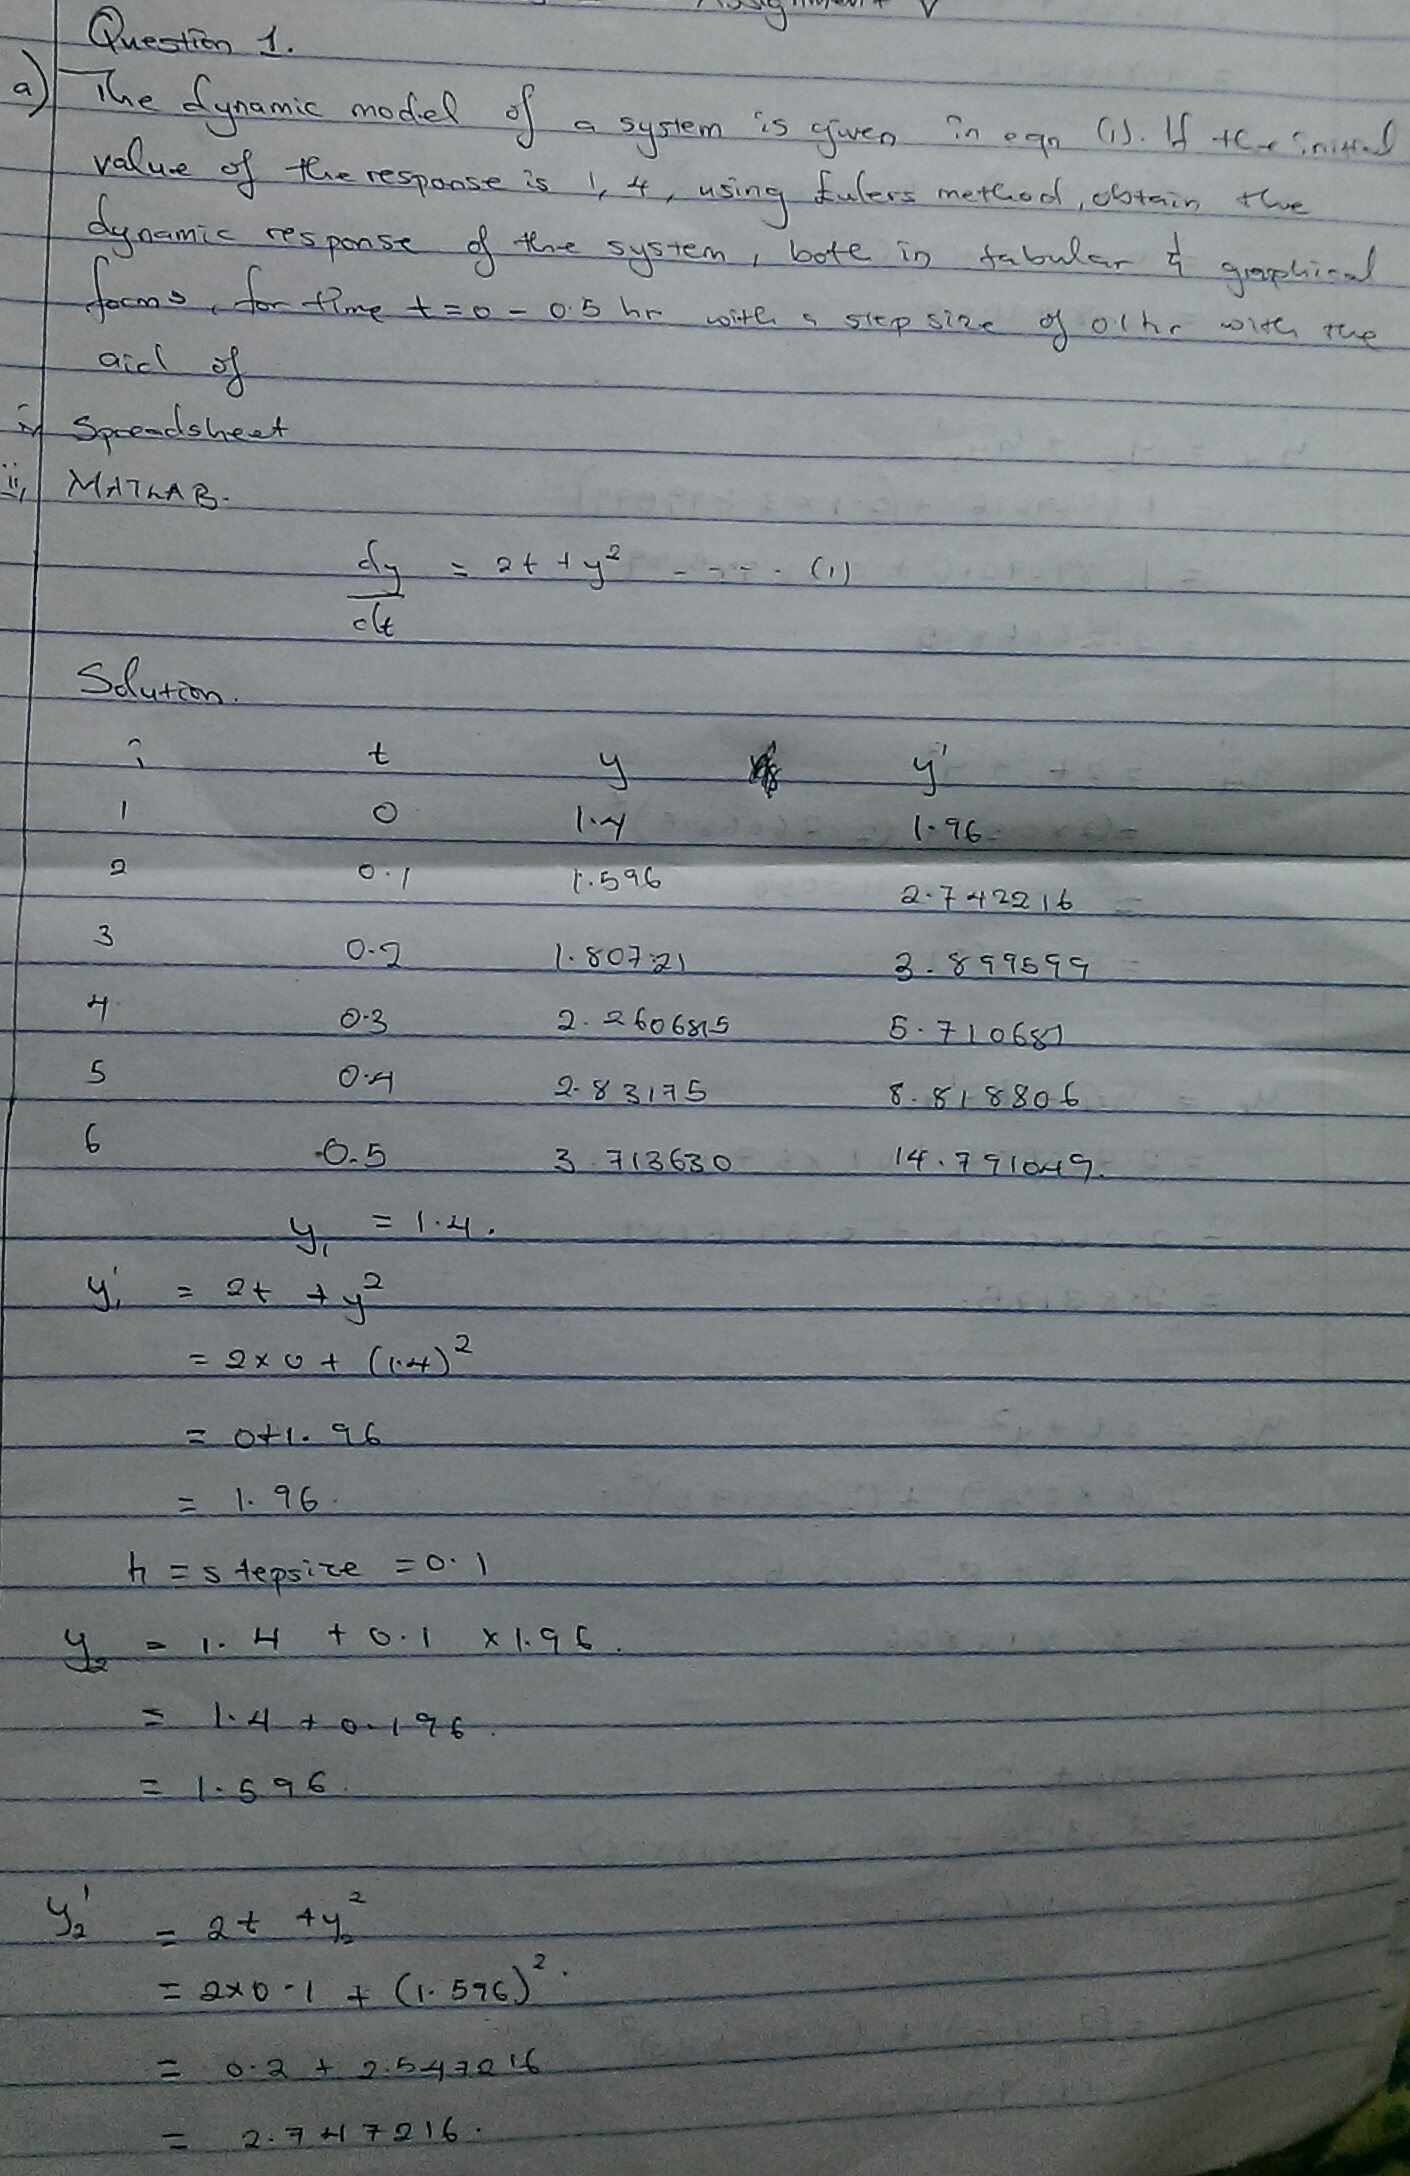 Assignment V
Question 1.
a) The dynamic model of a system is given in eqn (1). If the initial
value of the response is 1,4, using Eulers method, obtain the
dynamic response of the system, both in tabular & graphical
forms, for time t=0 - 0.5 hr with a step size of 0.1hr with the
aid of
i, Spreadsheet
ii, MATLAB.
dy/dt = 2t + y² - - - - (1)
Solution.
i t y y'
1 0 1.4 1.96
2 0.1 1.596 2.742216
3 0.2 1.80721 3.899599
4 0.3 2.260685 5.710687
5 0.4 2.83175 8.818806
6 0.5 3.713630 14.791049.
y₁ = 1.4.
y₁' = 2t + y²
= 2×0 + (1.4)²
= 0+1.96
= 1.96.
h = stepsize = 0.1
y₂ = 1.4 + 0.1 × 1.96.
= 1.4 + 0.196.
= 1.596.
y₂' = 2t + y₂²
= 2×0.1 + (1.596)².
= 0.2 + 2.547216
= 2.747216.